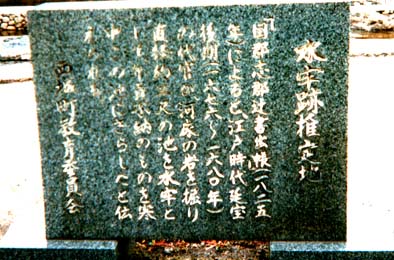 水牢跡推定地
「国郡志郡辻書出帳(一八二五
年)によると、江戸時代延宝
後期(一六七六〜一六八〇年)
の代官が河床の岩を掘り
直径約三尺の池を水牢と
して年貢未納のものを寒
中この池にさらしたと伝
えられる
西城町教育委員会